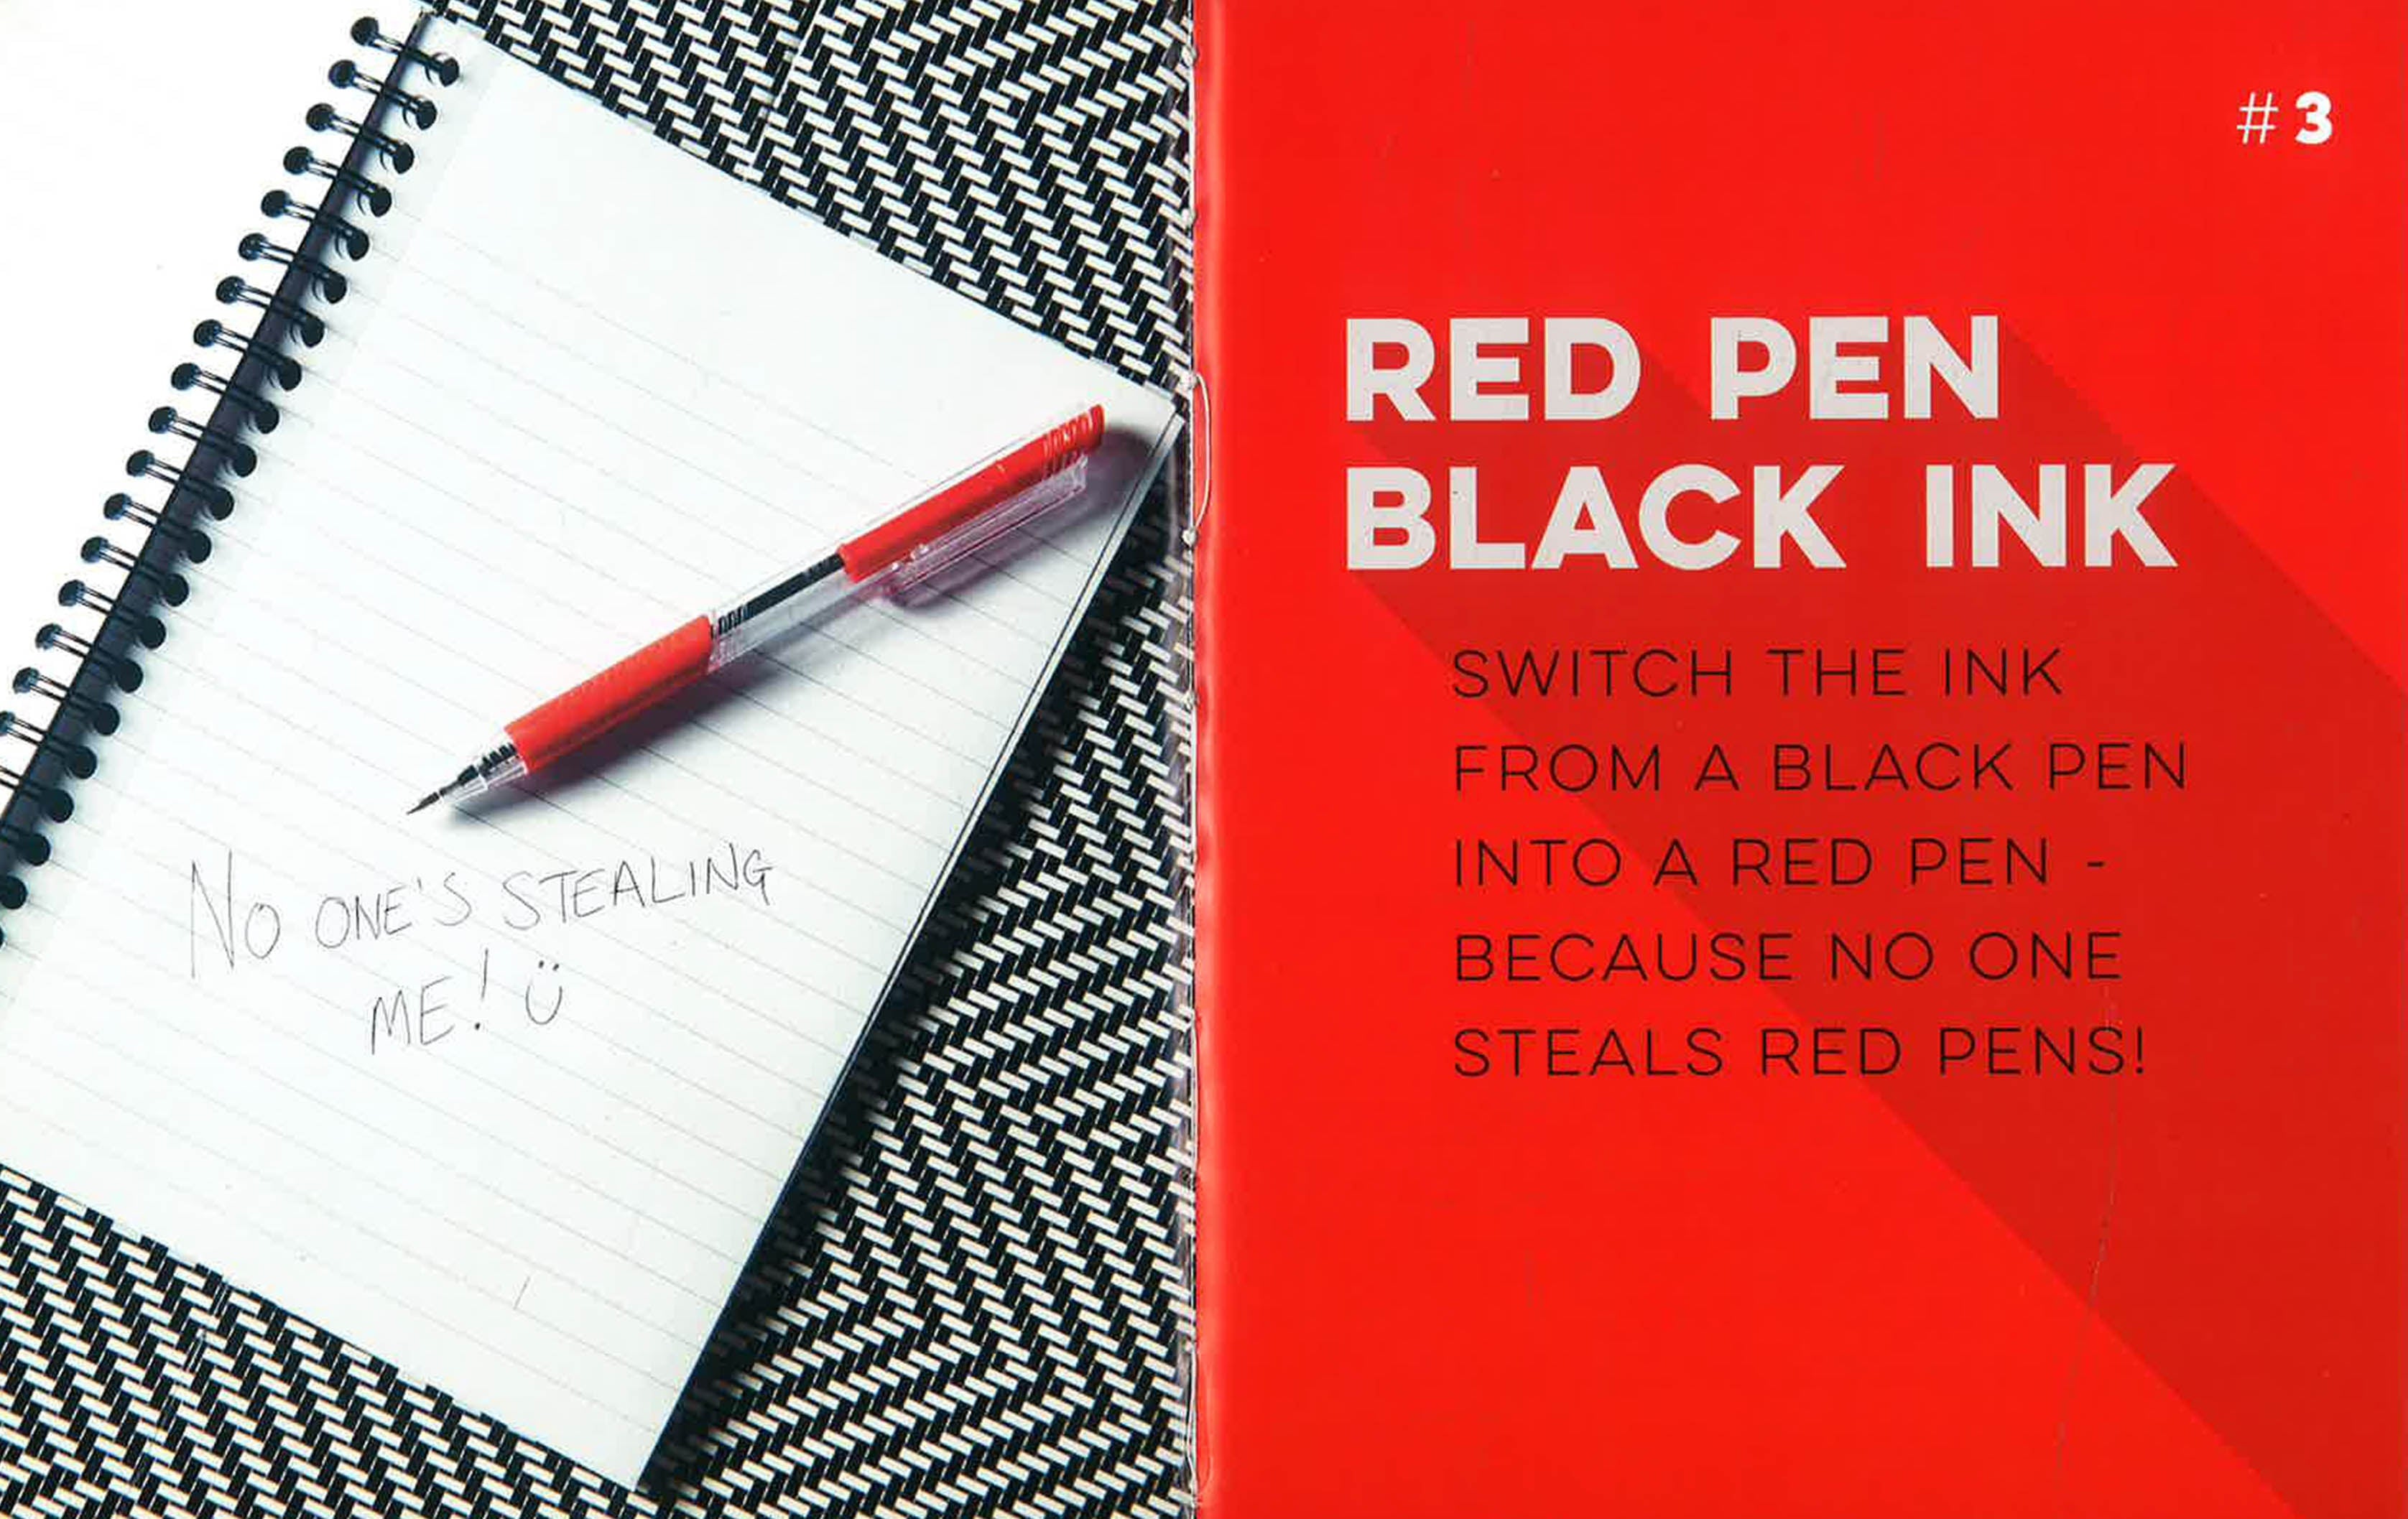 No ONE'S STEALING
ME! Ü
#3
RED PEN
BLACK INK
SWITCH THE INK
FROM A BLACK PEN
INTO A RED PEN -
BECAUSE NO ONE
STEALS RED PENS!